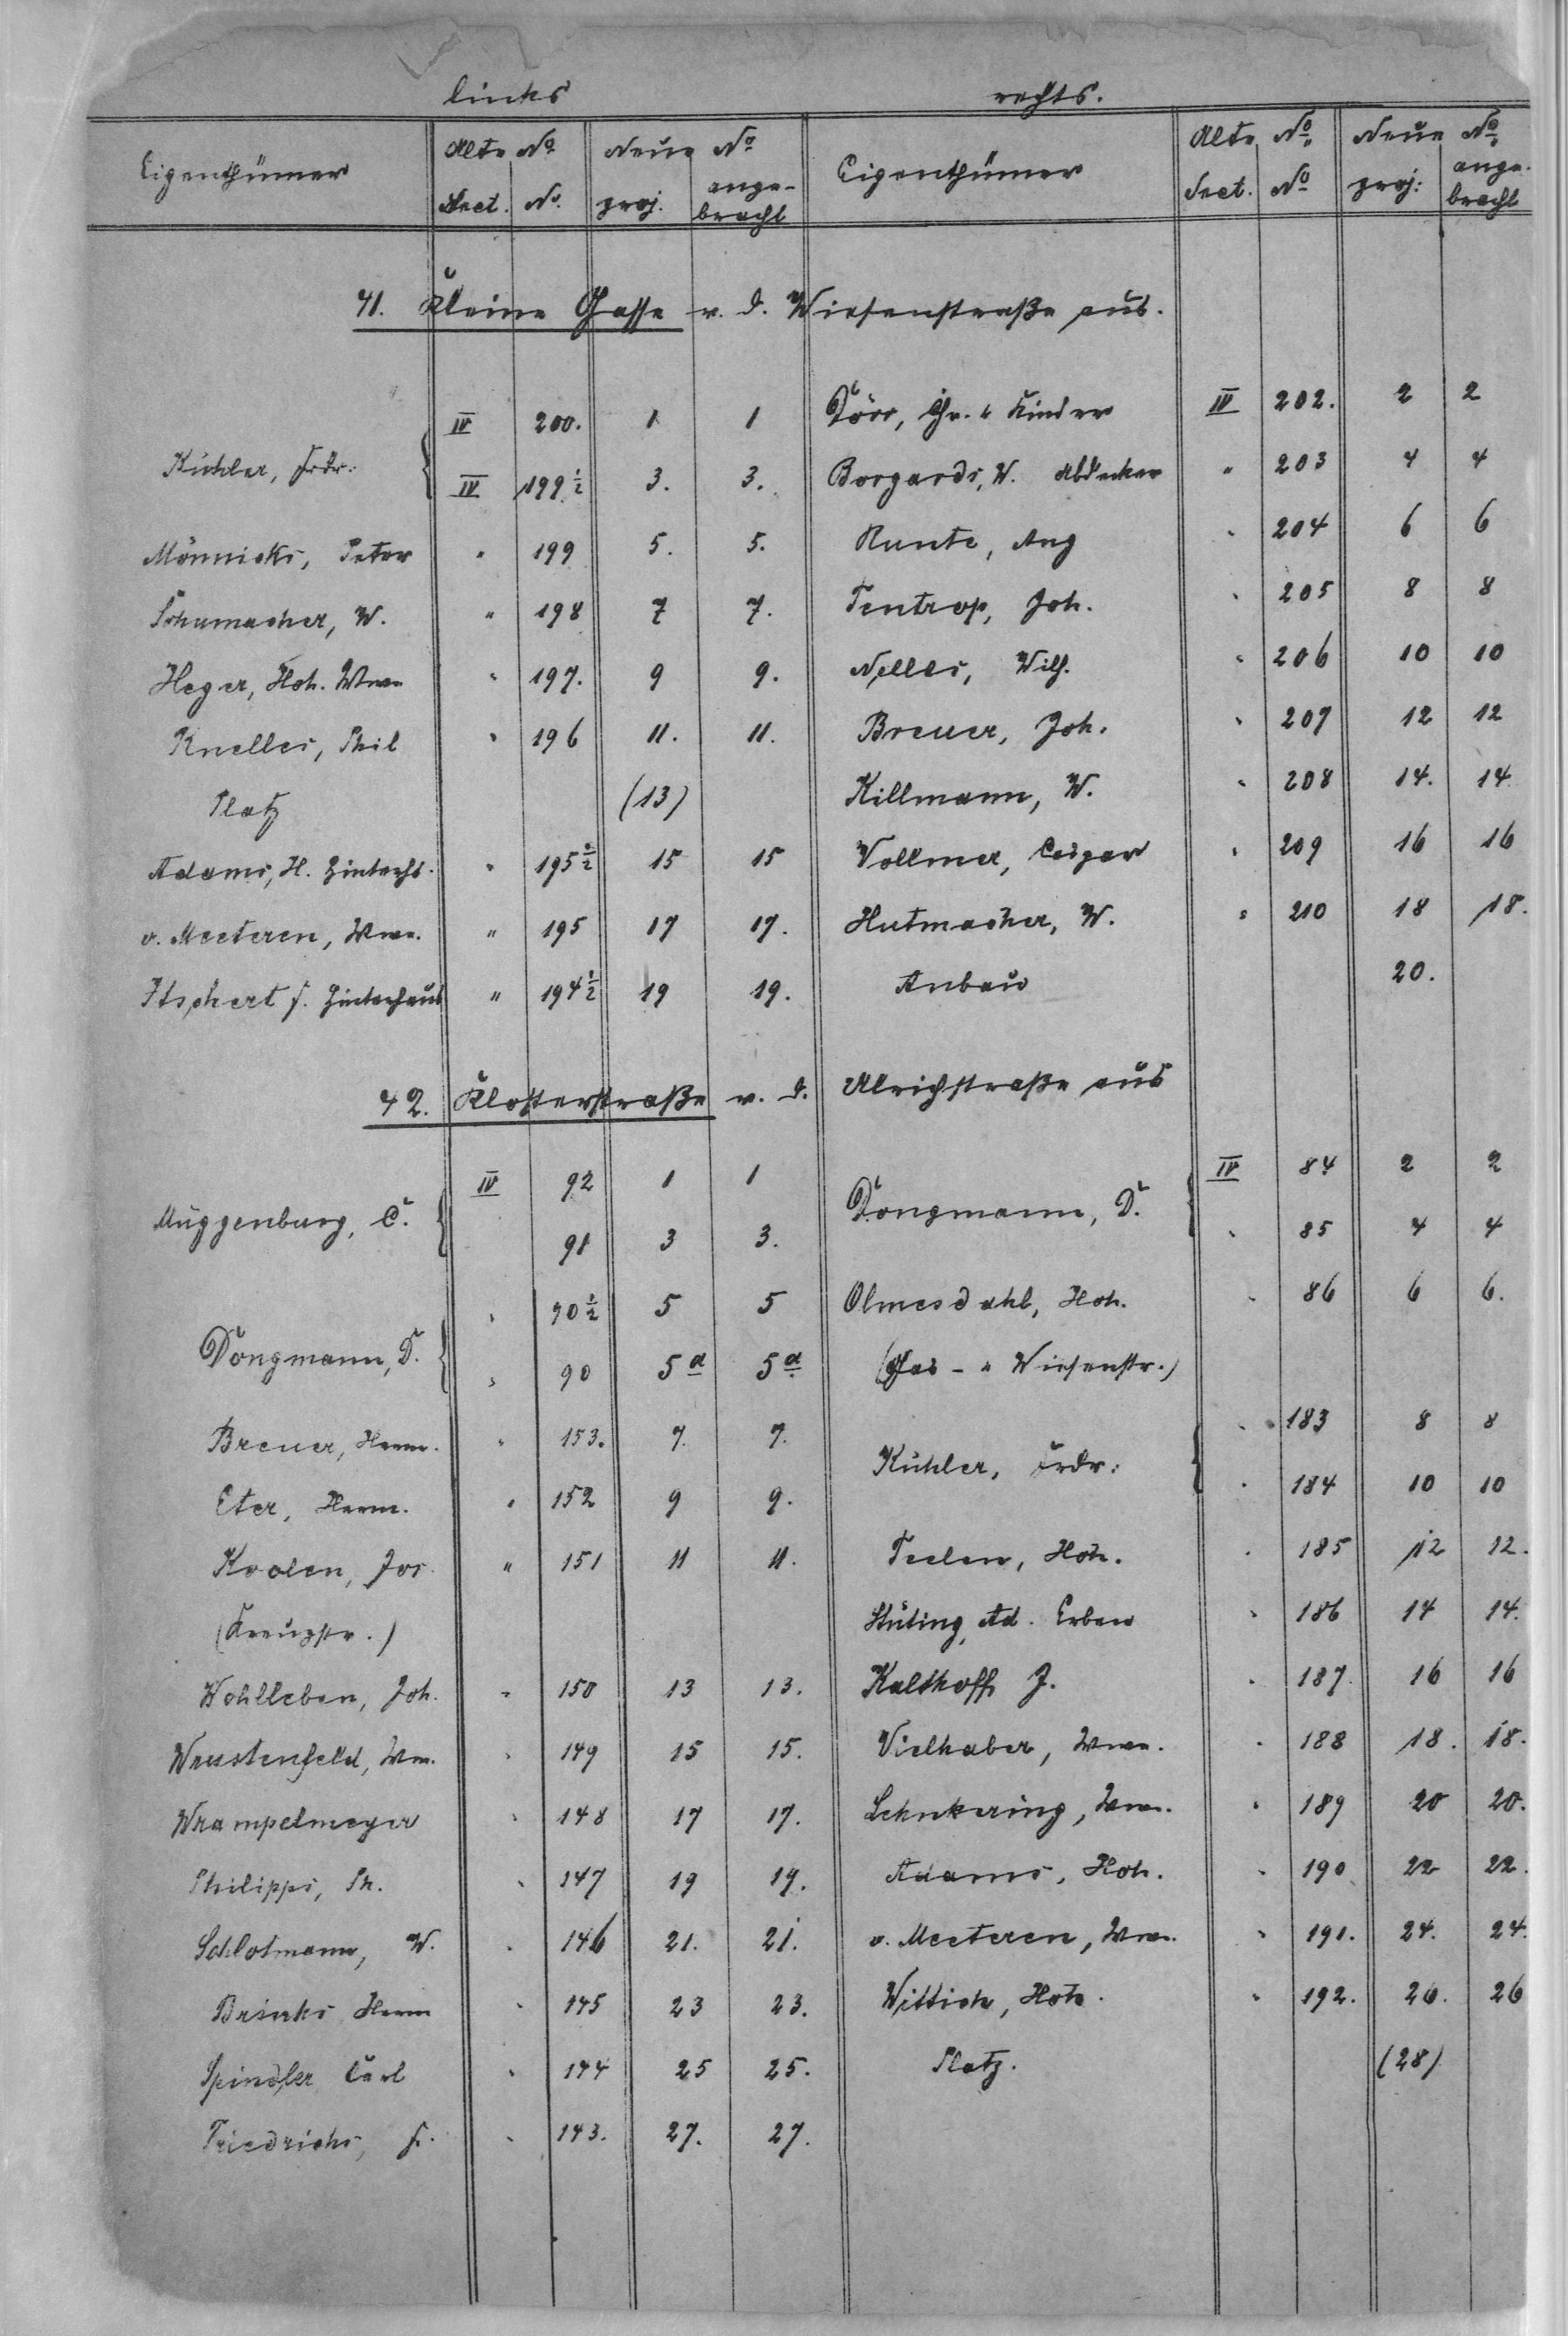 links rechts.
Eigenthümer Alte No Neue No Eigenthümer Alte No. Neue No.
Sect. No. proj. ange-bracht Sect. No proj: ange-bracht
41. Kleine Gasse v. d. Wiesenstraße aus.
IV 200. 1 1 Dörr, Gr. " Kinder IV 202. 2 2
Küchler, Frdr: IV 199½ 3. 3. Borgards, W. Abdecker " 203 4 4
Mönnicks, Peter " 199 5. 5. Runte, Aug " 204 6 6
Schumacher, W. " 198 7 7. Tentrop, Joh. " 205 8 8
Heger, Hch. Wwe " 197. 9 9. Nelles, Wilh. " 206 10 10
Knelles, Phil " 196 11. 11. Breuer, Joh. " 207 12 12
Platz (13) Killmann, W. " 208 14. 14
Adams, H. Hinterhs. " 195½ 15 15 Vollmer, Caspar " 209 16 16
v. Meeteren, Wwe. " 195 17 17. Hutmacher, W. " 210 18 18.
Itschert f. Hinterhaus " 194½ 19 19. Anbau 20.
42. Klosterstraße v. d. Ulrichstraße aus
Müggenburg, C. IV 92 1 1 Dongmann, D. IV 84 2 2
91 3 3. " 85 4 4
Dongmann, D. " 90½ 5 5 Olmesdahl, Hch. " 86 6 6.
" 90 5a 5a (Gas- " Wiesenstr.)
Breuer, Herm. " 153. 7. 7. Küchler, Frdr: " 183 8 8
Eter, Herm. " 152 9 9. " 184 10 10
Koolen, Jos " 151 11 11. Teelen, Hch. " 185 12 12.
(Kreuzstr.) Stüting, Ad. Erben " 186 14 14.
Wohlleben, Joh. " 150 13 13. Kalthoff J. " 187. 16 16
Wrustenfeld, Wwe. " 149 15 15. Vielhaber, Wwe. " 188 18. 18.
Wrampelmeyer " 148 17 17. Lehnkering, Wwe. " 189 20 20.
Philipps, Ph. " 147 19 19. Adams, Hch. " 190 22 22.
Schlotmann, W. " 146 21. 21. v. Meeteren, Wwe. " 191. 24. 24.
Brinks Herm " 145 23 23. Wittich, Hch. " 192. 26. 26
Spindler Carl " 144 25 25. Platz. (28)
Friedrichs, F. " 143. 27. 27.